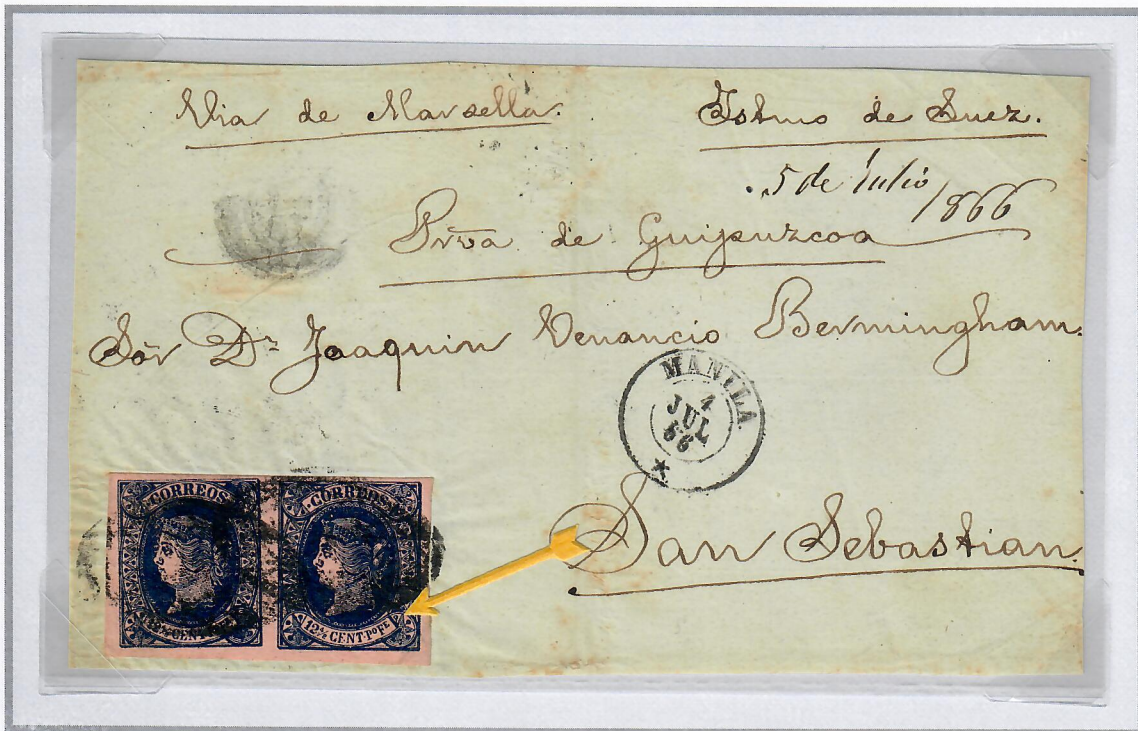 Via de Marsella. Istmo de Suez.
5 de Julio
1866
Prva de Guipuzcoa
Sor Dn Joaquin Venancio Bermingham.
MANILA
4
JUL
66
CORREOS CORREOS
12½ CENT. Po FE
San Sebastian.